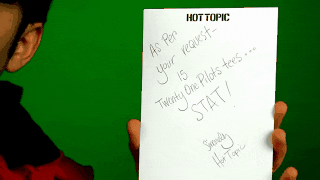 HOT TOPIC
As Per
your request-
15
Twenty One Pilots tees...
STAT!
Sincerely,
Hot Topic